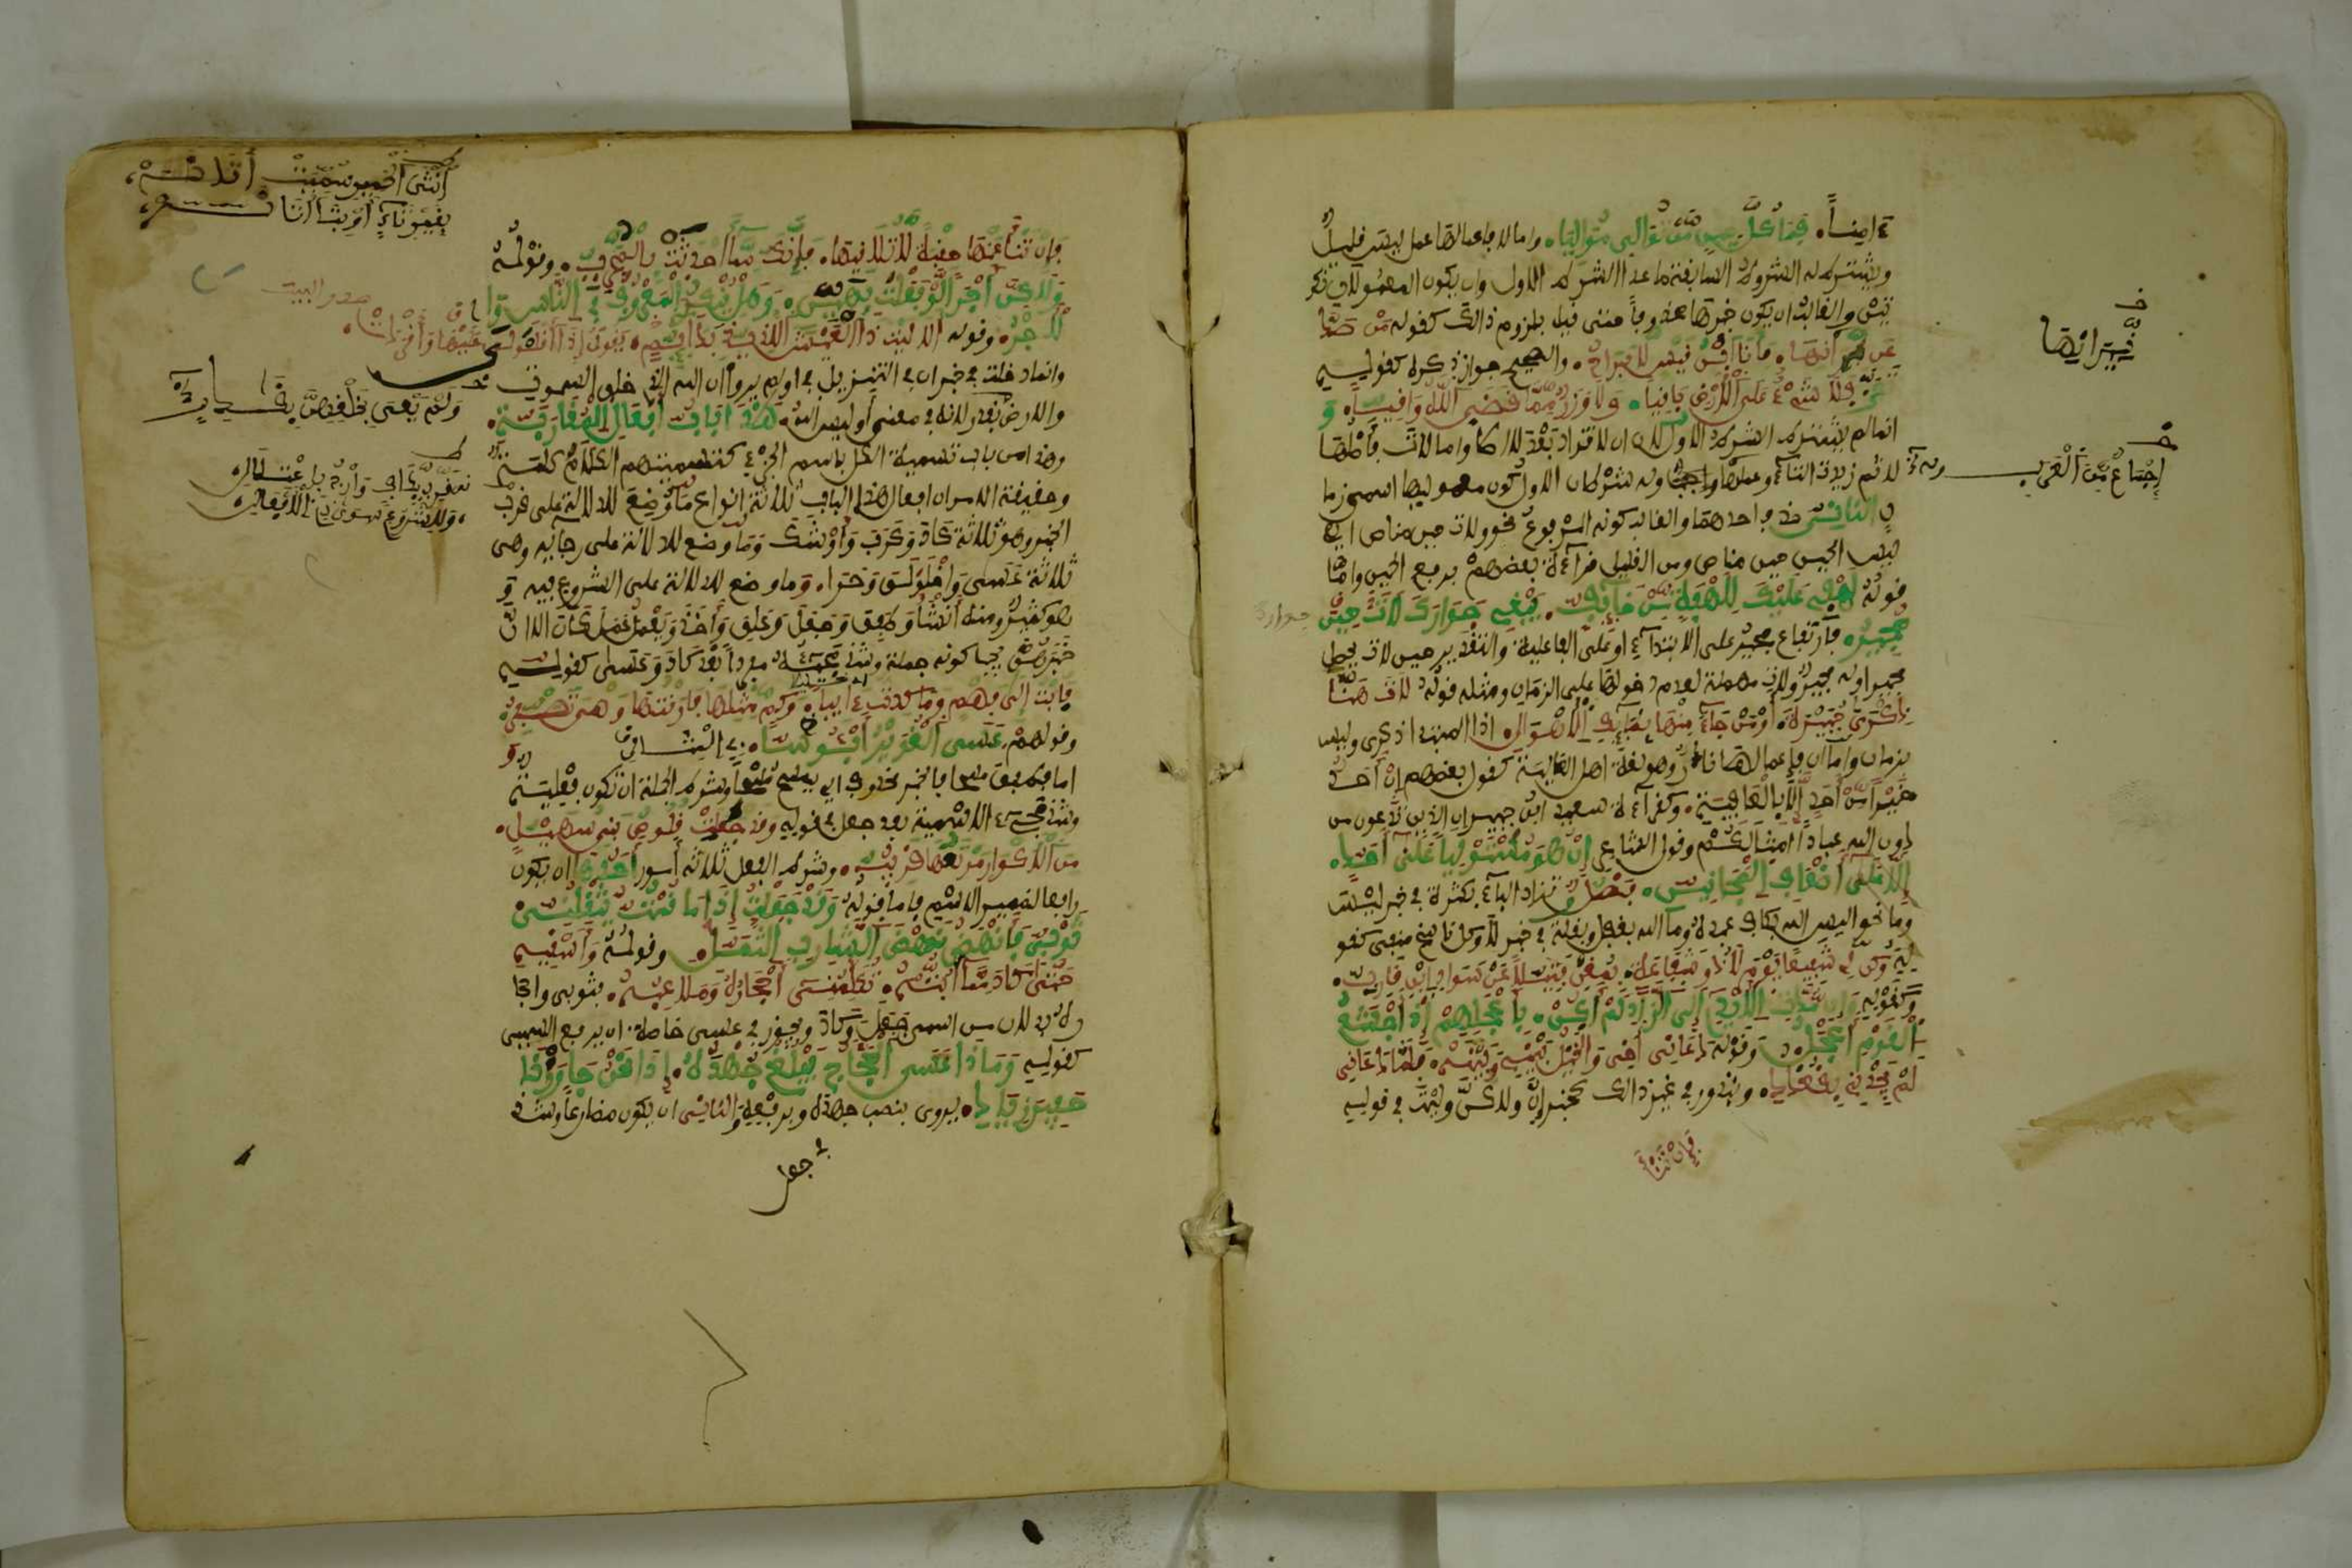 ءامنا. فما كل حين من توالي مواليا. واما لا فاعمالها عمل ليس قليل
ويشترط له الشروط السابقة ما عدا الشرط الاول وان يكون المعمولان نكر
تين والغالب ان يكون خبرها محذوفا حتى قيل بلزوم ذالك كقوله من صد
عن نيرانها. فانا ابن قيس لا براح. والصحيح جواز ذكره كقوله
تعز فلا شيء على الارض باقيا. ولا وزر مما قضى الله واقيا. و
انما لم يشترط الشرط الاول لان ان لا تزاد بعد لا اصلا واما لات فاصلها
لا ثم زيدت التاء وعملها واجب وله شرطان الاول كون معموليها اسمي زما
ن الثاني حذف احدهما والغالب كونه المرفوع نحو ولات حين مناص اي
ليس الحين حين مناص ومن القليل قراءة بعضهم برفع الحين واما
قوله لهفي عليك للهفة من خائف. يبغي جوارك لات حين
مجير. فارتفاع مجير على الابتداء او على الفاعلية والتقدير حين لات يحصل
مجير او له مجير ولات مهملة لعدم دخولها على الزمان ومثله قوله لات هنا
ذكرى جبيرة. او من جاء منها بطائف الاهوال. اذ المبتدا ذكرى وليس
بزمان واما ان فاعمالها نادر وهو لغة اهل العالية كقول بعضهم ان احد
خيرا من احد الا بالعافية. وكقراءة سعيد ابن جبير ان الذين تدعون من
دون الله عبادا امثالكم وقول الشاعر ان هو مستوليا على احد.
الا على اضعف المجانين. فصل وتزاد الباء بكثرة في خبر ليس
وما نحو اليس الله بكاف عبده وما الله بغافل وبقلة في خبر لا وكل ناسخ منفي كقو
له وكن لي شفيعا يوم لا ذو شفاعة. بمغن فتيلا عن سواد ابن قارب.
وكقوله وان مدت الايدي الى الزاد لم اكن. باعجلهم اذ اجشع
القوم اعجل. وقوله دعاني اخي والخيل بيني وبينه. فلما دعاني
لم يجدني بقعدد. وبندور في غير ذالك كخبر ان ولكن وليت في قوله
فان تنأ
نيرانها
اجماع من العرب
فان تنأ عنها حقبة لا تلاقها. فانك مما احدثت بالمجرب. وقوله
ولكن اجرا لو فعلت بهين. وهل ينكر المعروف في الناس وا
لاجر. وقوله الا ليت ذا العيش اللذيذ بدائم. يقول اذا اقلولى عليها واقردت.
وانما دخلت في خبر ان في التنزيل في اولم يروا ان الله الذي خلق السموت
والارض بقادر لانه في معنى اوليس الله هذا باب افعال المقاربة.
وهذا من باب تسمية الكل باسم الجزء كتسميتهم الكلام كلمة
وحقيقة الامر ان افعال هذا الباب ثلاثة انواع ما وضع للدلالة على قرب
الخبر وهو ثلاثة كاد وكرب واوشك وما وضع للدلالة على رجائه وهي
ثلاثة عسى واخلولق وحرا. وما وضع للدلالة على الشروع فيه و
هو كثير ومنه انشأ وطفق وجعل وعلق واخذ ويعمل عمل كان الا ان
خبرهن يجب كونه جملة وشذ مجيئه مفردا بعد كاد وعسى كقوله
فابت الى فهم وما كدت ءايبا. وكم مثلها فارقتها وهي تصفر.
وقولهم عسى الغوير ابؤسا.
اما فطفق مسحا فالخبر محذوف اي يمسح مسحا وشرط الجملة ان تكون فعلية
وشذ مجيء الاسمية بعد جعل في قوله وقد جعلت قلوص بني سهيل.
من الاكوار مرتعها قريب. وشرط الفعل ثلاثة امور احدها ان يكون
رافعا لضمير الاسم فاما قوله وقد جعلت اذا ما قمت يثقلني
ثوبي فانهض نهض الشارب الثمل. وقوله واسقيه
حتى كاد مما ابثه. تكلمني احجاره وملاعبه. فثوبي واحجا
ره بدلان من اسمي جعل وكاد ويجوز في عسى خاصة ان يرفع السببي
كقوله وماذا عسى الحجاج يبلغ جهده. اذا نحن جاوزنا
حفير زياد. يروى بنصب جهده وبرفعه والثاني ان يكون مضارعا وشذ
في جعل
صدر البيت